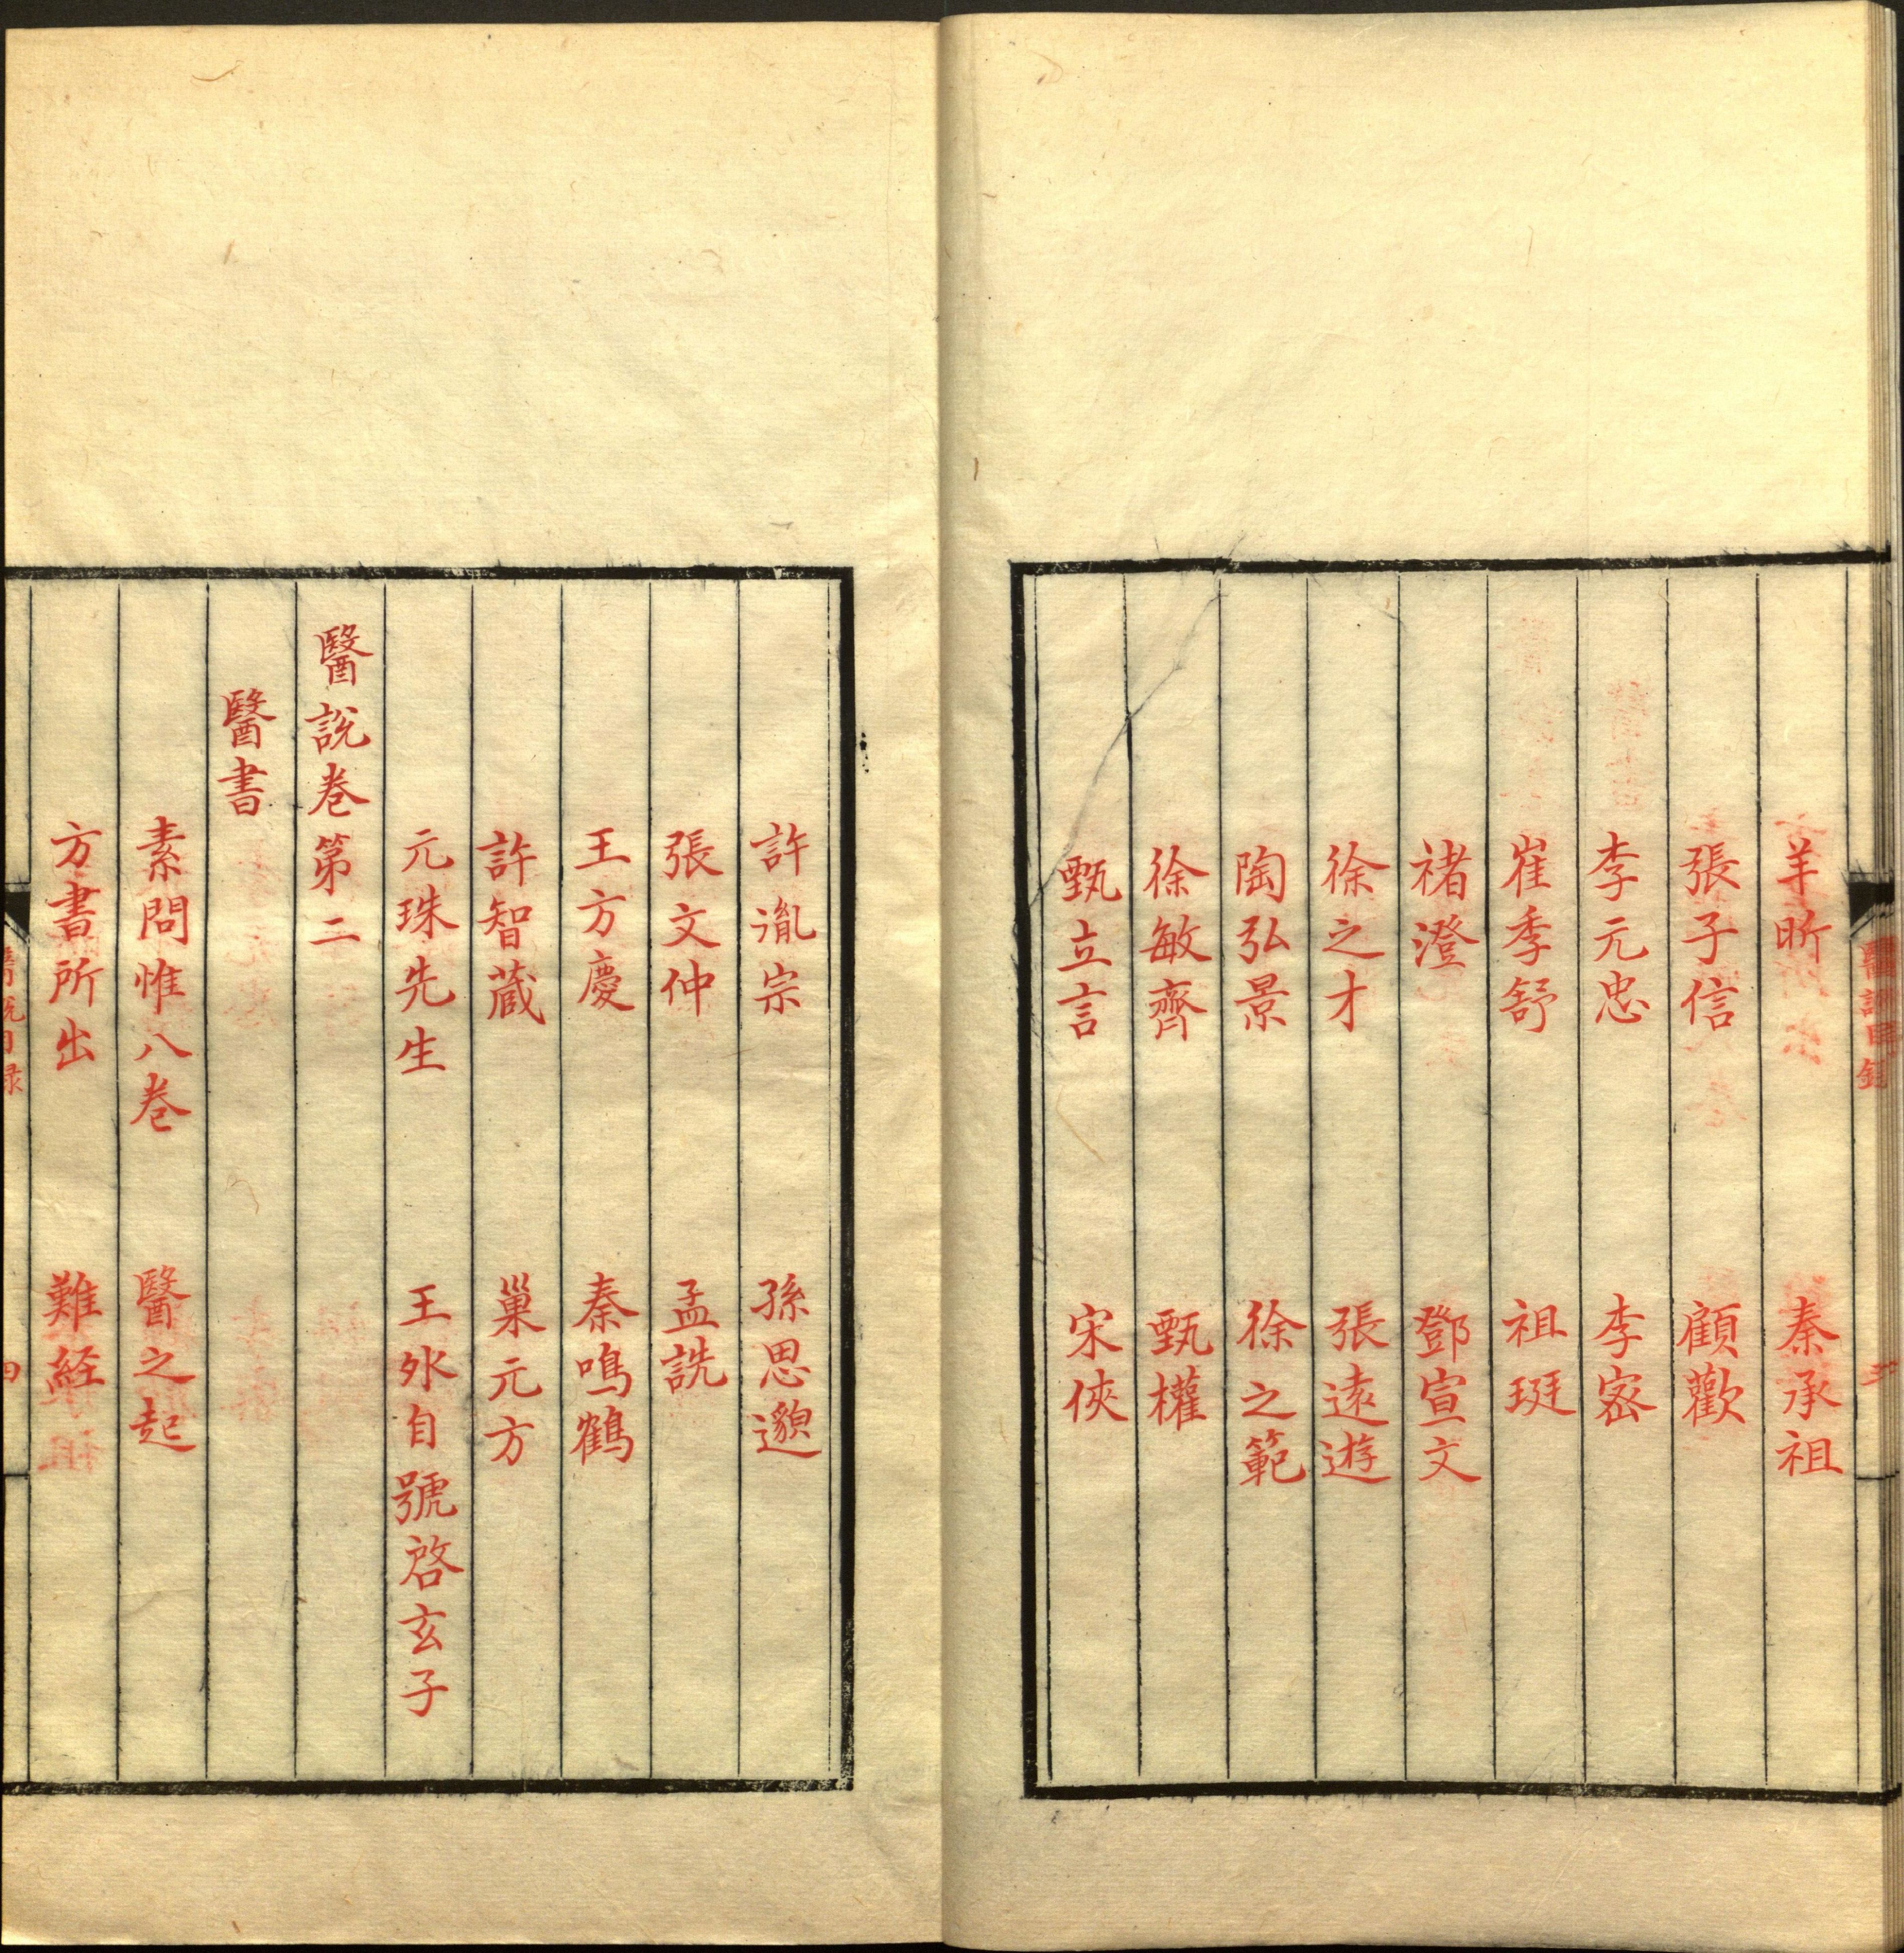 醫說目錄 三
羊昕 秦承祖
張子信 顧歡
李元忠 李宻
崔季舒 祖珽
褚澄 鄧宣文
徐之才 張遠遊
陶弘景 徐之範
徐敏齊 甄權
甄立言 宋俠
許胤宗 孫思邈
張文仲 孟詵
王方慶 秦鳴鶴
許智藏 巢元方
元珠先生 王冰自號啓玄子
醫說卷第二
醫書
素問惟八卷 醫之起
方書所出 難経
醫說目録 四